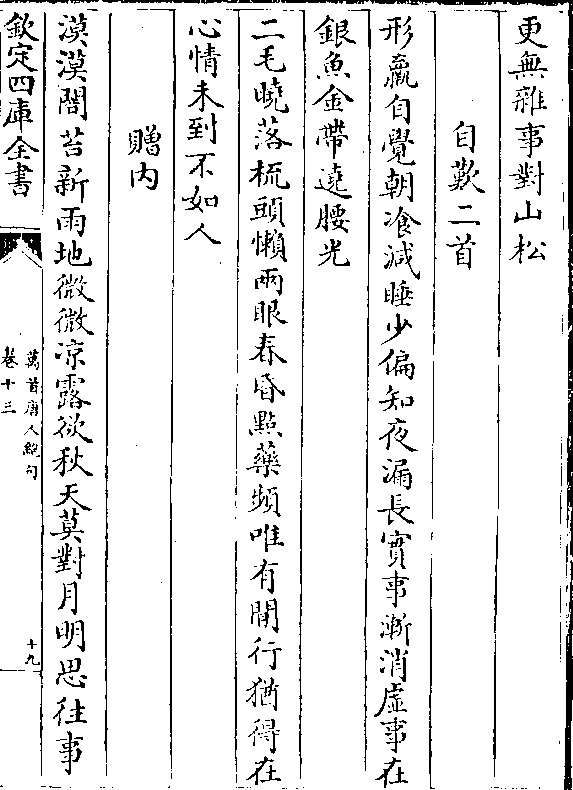 更無雜事對山松
自歎二首
形羸自覺朝飡減睡少偏知夜漏長實事漸消虛事在
銀魚金帶遶腰光
二毛曉落梳頭懶兩眼春昏點藥頻唯有閒行猶得在
心情未到不如人
贈内
漠漠闇苔新雨地微微凉露欲秋天莫對月明思往事
欽定四庫全書
萬首唐人絶句
卷十三
十九